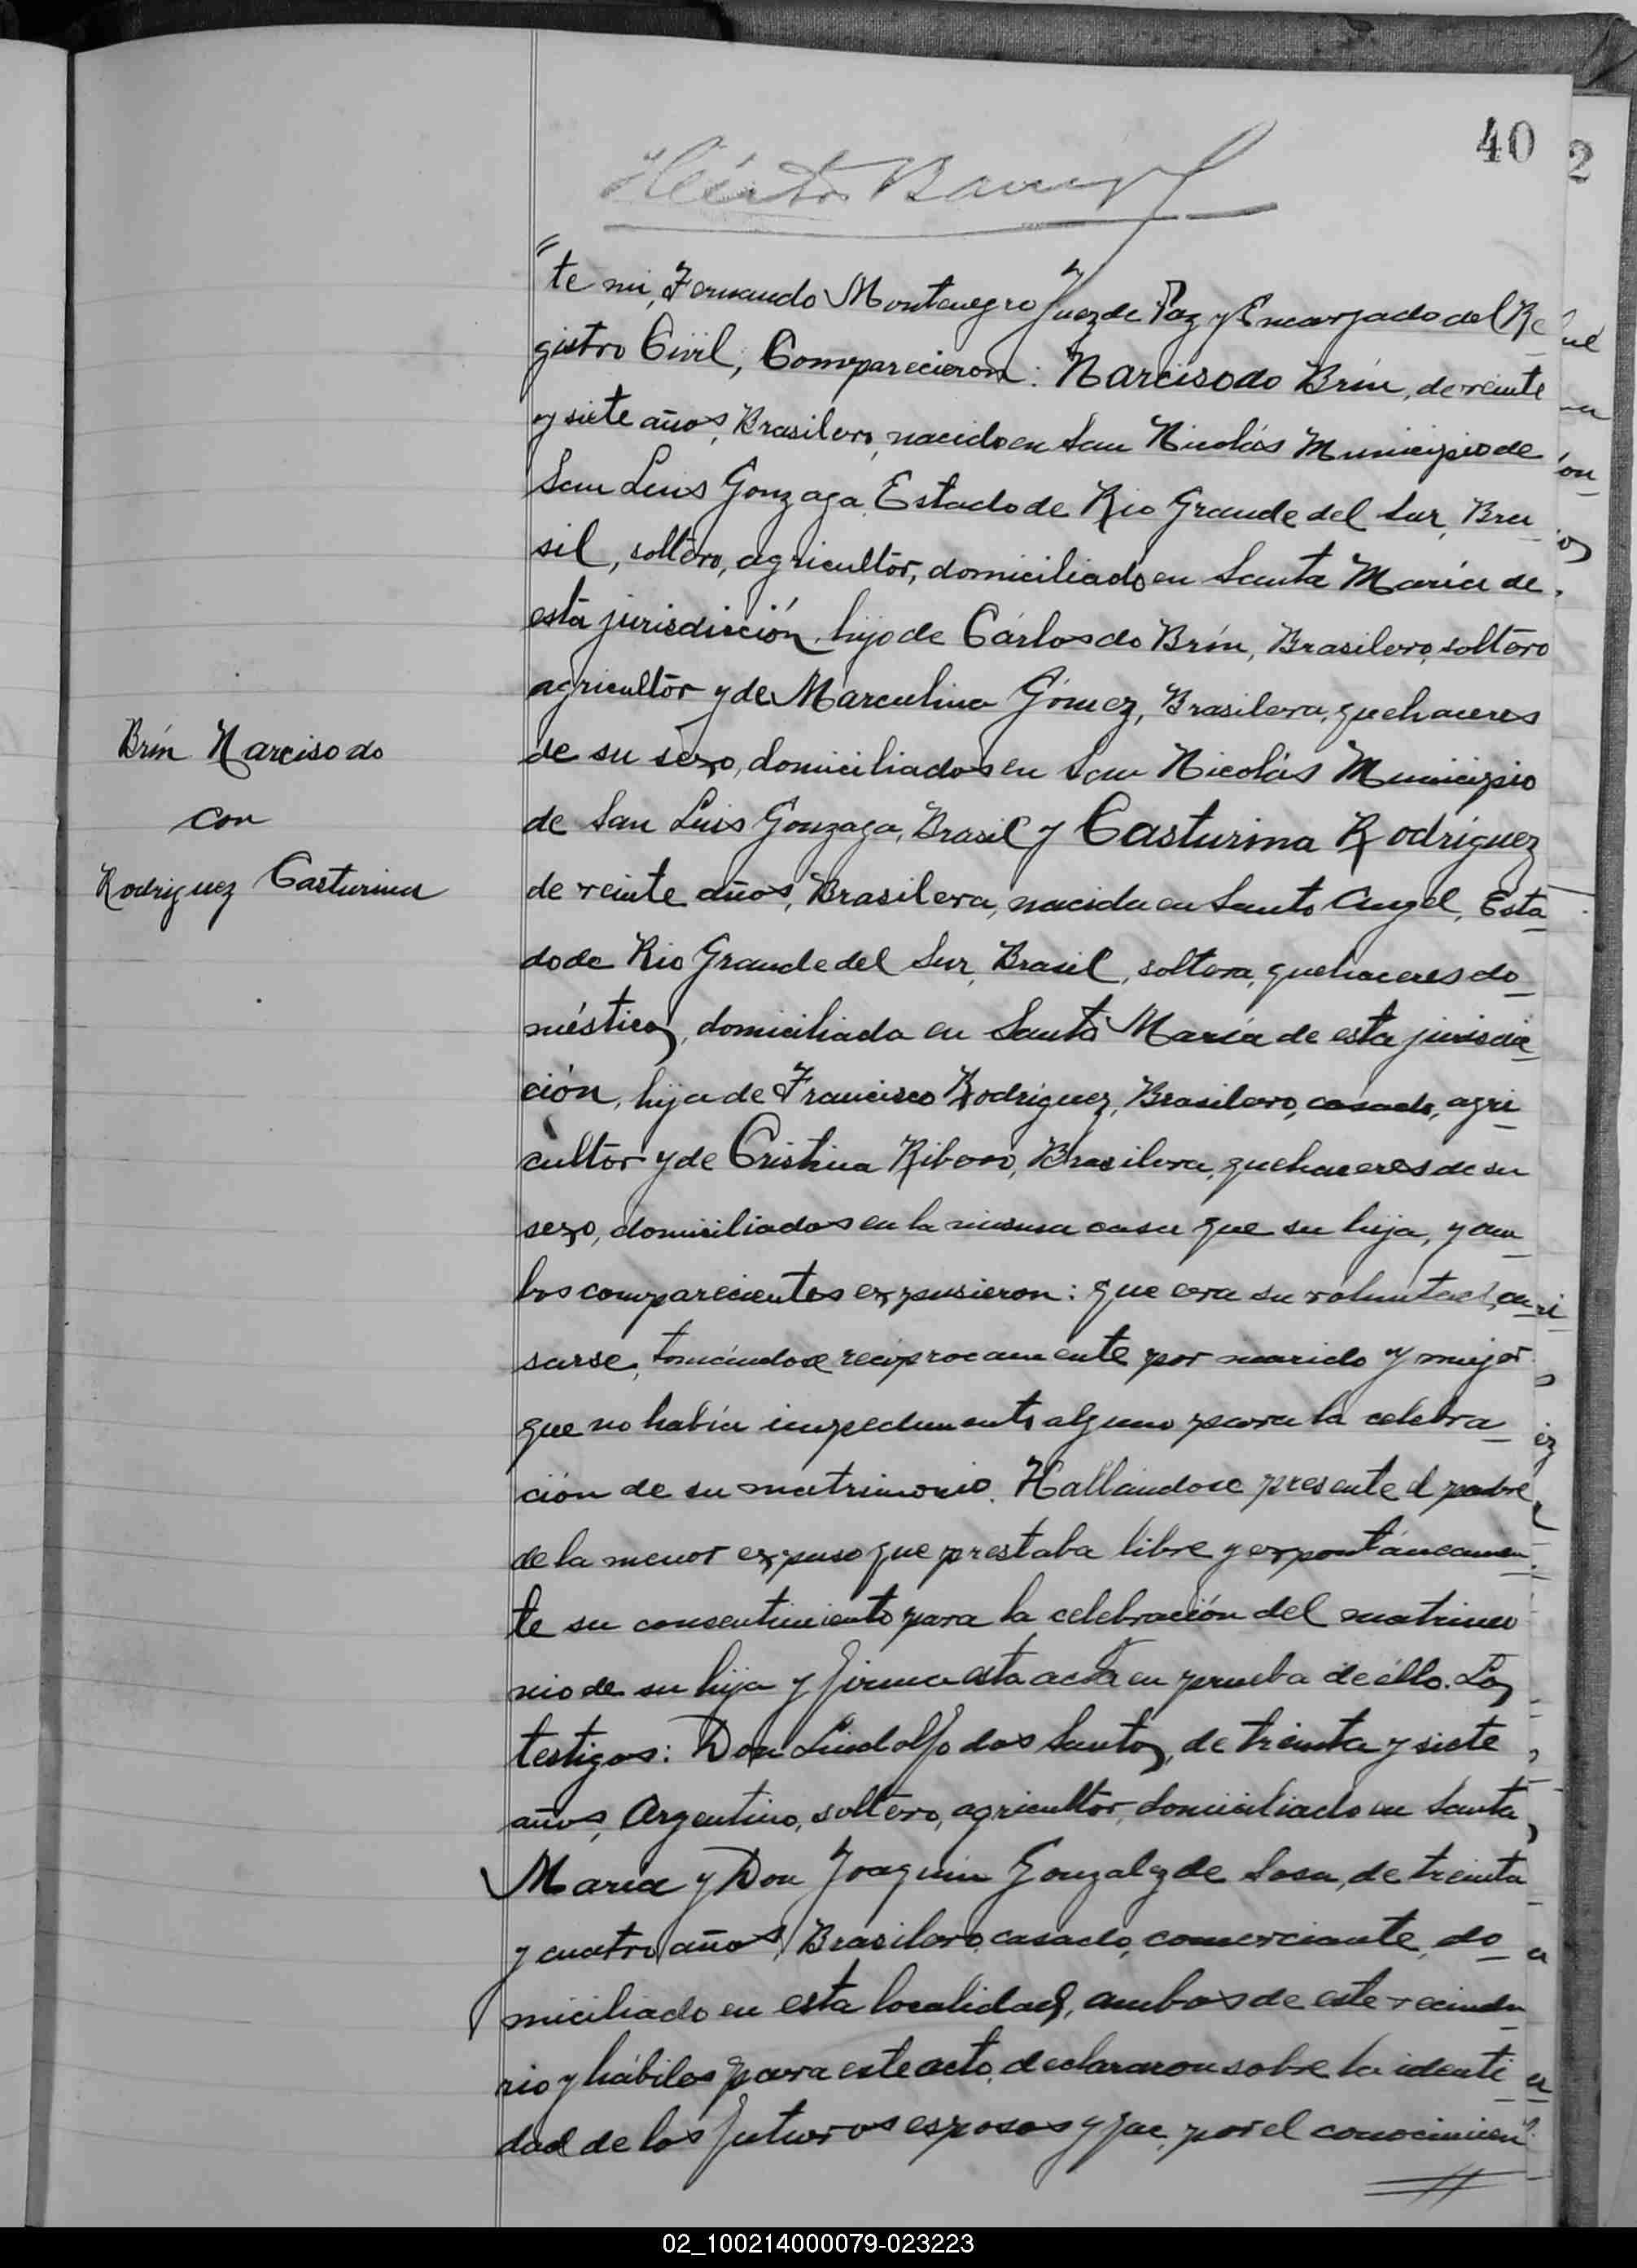 40
2
"te mi, Fernando Montenegro Juez de Paz y Encargado del Re
gistro Civil, Comparecieron: Narciso do Brin, de veinte
y siete años, Brasilero, nacido en San Nicolás Municipio de
San Luis Gonzaga, Estado de Rio Grande del Sur, Bra_
sil, soltero, agricultor, domiciliado en Santa María de
esta jurisdicción, hijo de Cárlos do Brin, Brasilero, soltero
agricultor y de Marculina Gómez, Brasilera, quehaceres
de su sexo, domiciliados en San Nicolás Municipio
de San Luis Gonzaga, Brasil y Casturina Rodriguez
de veinte años, Brasilera, nacida en Santo Angel, Esta_
do de Rio Grande del Sur, Brasil, soltera, quehaceres do_
mésticos, domiciliada en Santa María de esta jurisdic_
ción, hija de Francisco Rodriguez, Brasilero, casado, agri_
cultor y de Cristina Ribero, Brasilera, quehaceres de su
sexo, domiciliados en la misma casa que su hija, y am_
bos comparecientes expusieron: que era su voluntad, ca
sarse, tomándose reciprocamente por marido y mujer
que no había impedimento alguno para la celebra_
ción de su matrimonio. Hallándose presente el padre
de la menor expuso que prestaba libre y expontáneamen_
te su consentimiento para la celebración del matrimo
nio de su hija y firma esta acta en prueba de ello. Los
testigos: Don Lindolfo dos Santos, de treinta y siete
años, Argentino, soltero, agricultor, domiciliado en Santa
María y Don Joaquin Gonzalez de Sosa, de treinta
y cuatro años, Brasilero, casado, comerciante, do_
miciliado en esta localidad, ambos de este vecinda_
rio y hábiles para este acto, declararon sobre la identi_
dad de los futuros esposos y que, por el conocimien
Brin Narciso do
con
Rodriguez Casturina
02_100214000079-023223